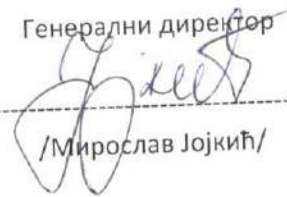 Генерални директор
/Мирослав Јојкић/